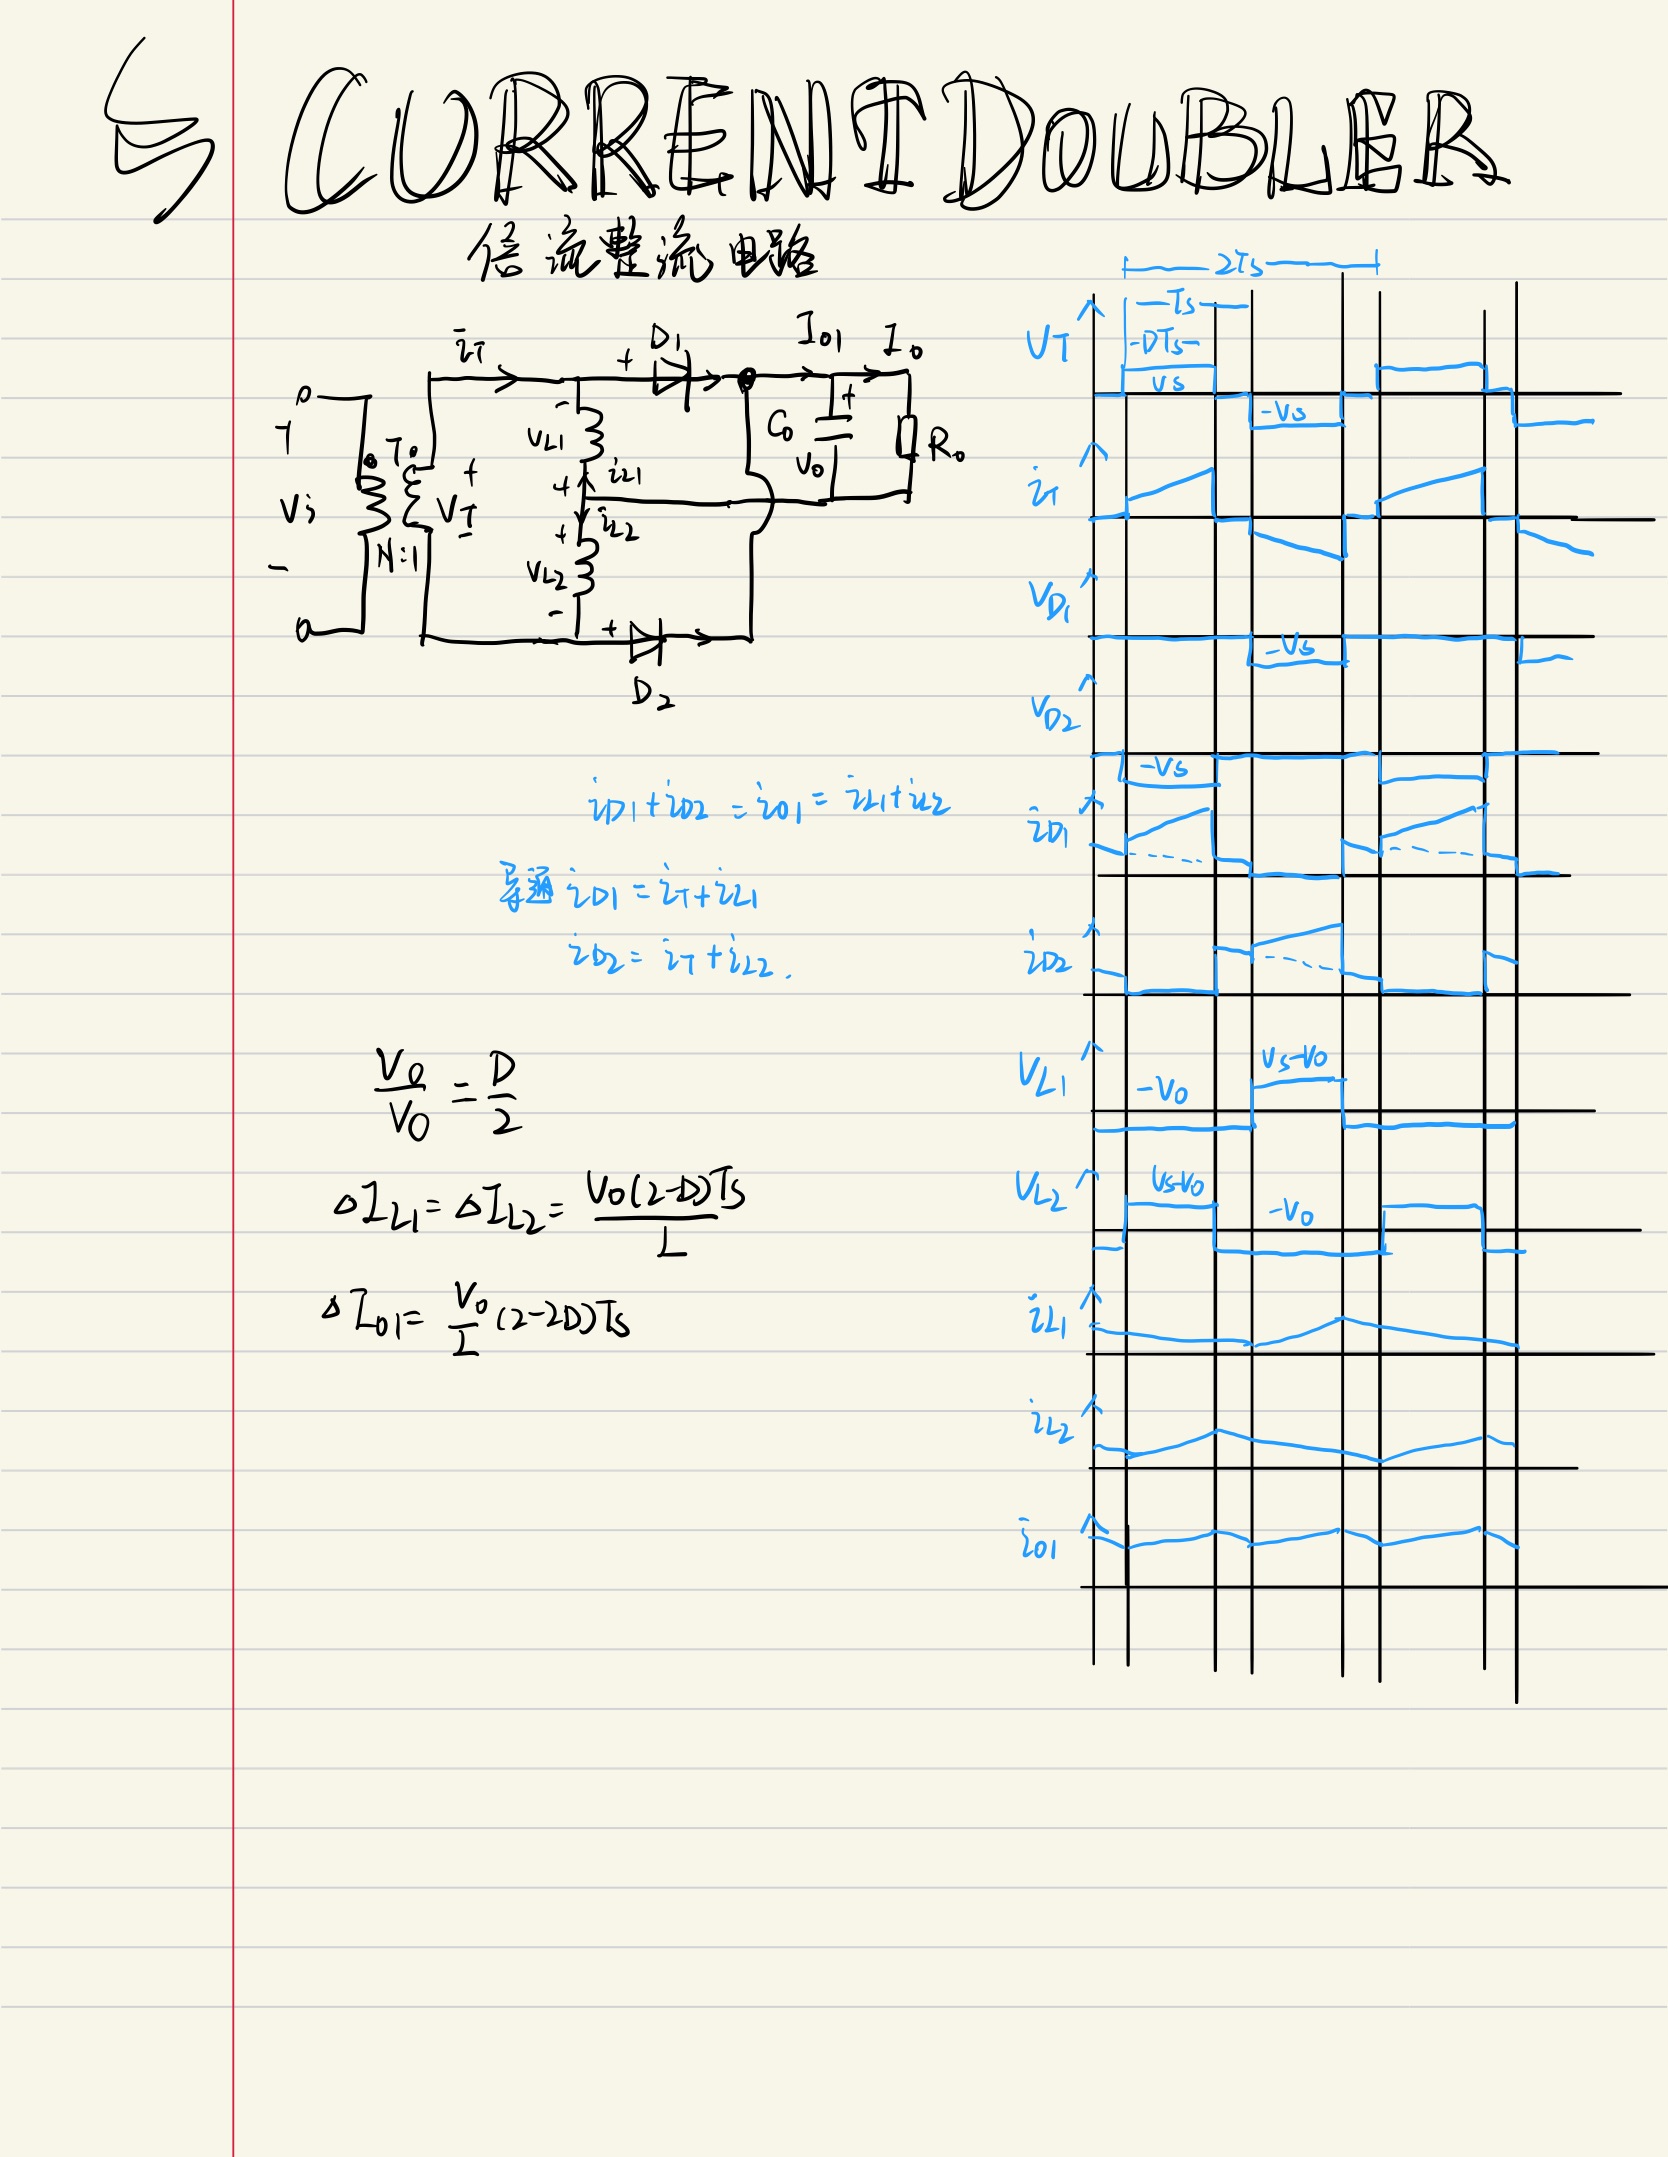 CURRENT DOUBLER
倍流整流电路
iT D1 I01 I0
+ + -
VL1 C0 + R0
V0
+ iL1
T
Vi VT
+ iL2
N:1 VL2
- - + -
D2
iD1+iD2 = i01 = iL1+iL2
导通 iD1 = iT+iL1
iD2 = iT+iL2.
V0/V0 = D/2
ΔIL1 = ΔIL2 = V0(2-D)Ts/L
ΔI01 = V0/L (2-2D)Ts
2Ts
Ts
VT -DTs-
Vs
-Vs
iT
VD1
-Vs
VD2
-Vs
iD1
iD2
VL1 -V0 Vs-V0
VL2 Vs-V0 -V0
iL1
iL2
i01